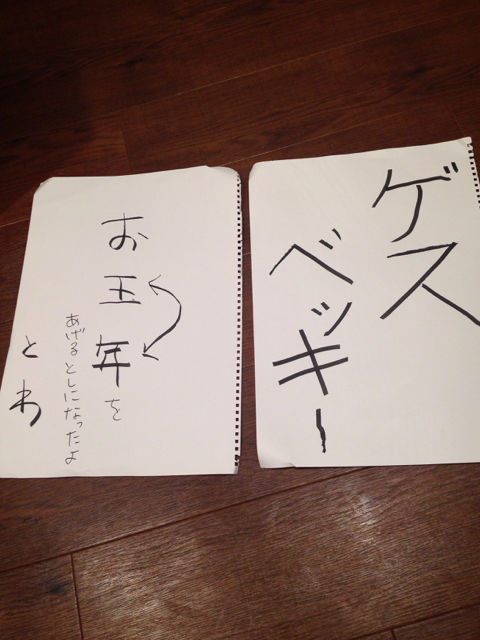 ゲス
ベッキー
お玉年を
あげるとしになったよ
とわ